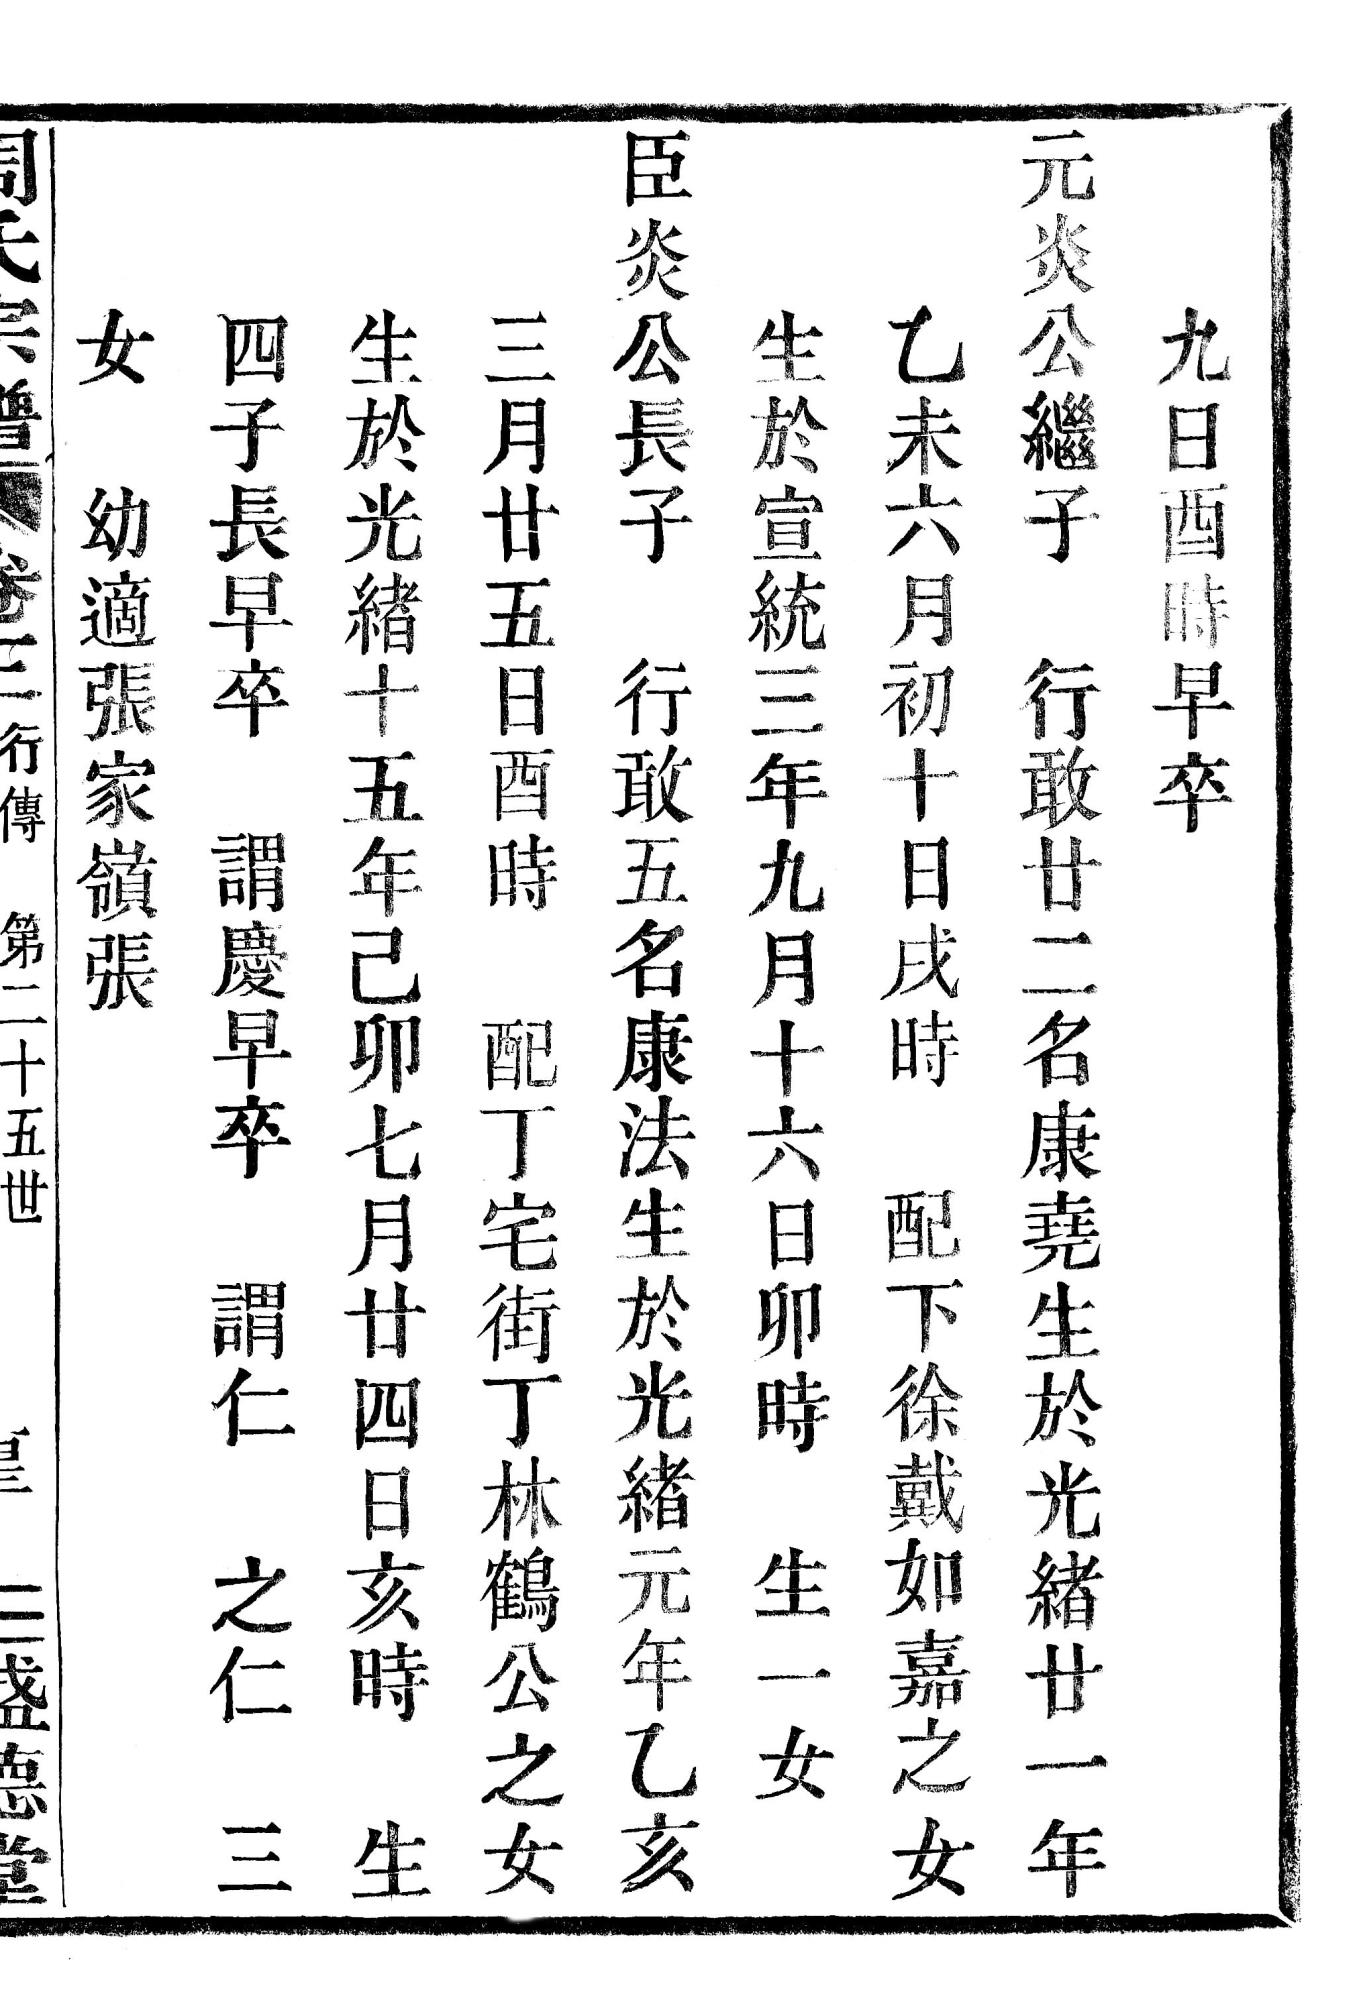 九日酉時早卒
元炎公繼子　行敢廿二名康堯生於光緒廿一年
乙未六月初十日戌時　配下徐戴如嘉之女
生於宣統三年九月十六日卯時　生一女
臣炎公長子　行敢五名康法生於光緒元年乙亥
三月廿五日酉時　配丁宅街丁林鶴公之女
生於光緒十五年己卯七月廿四日亥時　生
四子長早卒　謂慶早卒　謂仁　之仁　三
女　幼適張家嶺張
周氏宗譜　卷三　行傳　第二十五世　二盛德堂